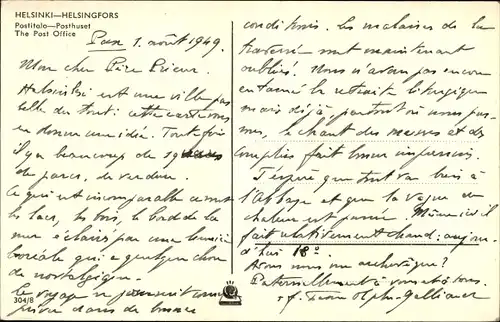 HELSINKI—HELSINGFORS
Postitalo—Posthuset
The Post Office
Pax 1. août 1949.
Mon cher Père Prieur
Helsinki est une ville pas
belle du tout: cette carte vous
en donne une idée. Toutefois
il y a beaucoup de
de parcs, de verdure.
Ce qui est incomparable ce sont
les lacs, les bois, le bord de la
mer éclairés par une lumière
boréale qui a quelque chose
de nostalgique.
Le voyage se poursuit
dans de bonnes
304/8
conditions. les malaises de la
traversée sont maintenant
oubliés. Nous n'avons pas encore
entamé la retraite liturgique
mais déjà partout où nous
le chant des messes et des
complies fait bonne impression.
J'espère que tout va bien à
l'Abbaye et que la vague de
chaleur est passée. Même ici il
fait relativement chaud: aujour
d'hui 18°
Avons nous un archevêque?
Paternellement à vous et à tous.